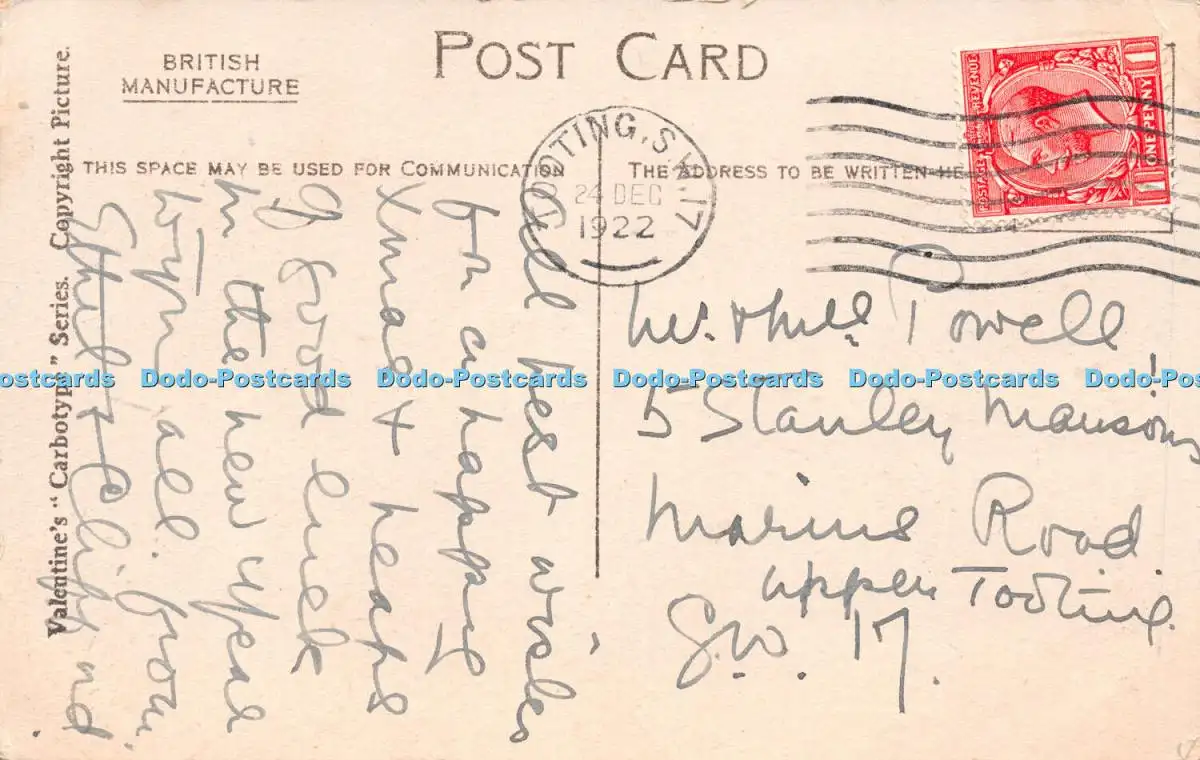 POST CARD
BRITISH
MANUFACTURE
THIS SPACE MAY BE USED FOR COMMUNICATION
THE ADDRESS TO BE WRITTEN HE
Valentine's "Carbotype" Series. Copyright Picture.
TOOTING, S.W.17
24 DEC
1922
POSTAGE
REVENUE
ONE PENNY
All best wishes
for a happy
Xmas & heaps
of good luck
in the new year
to you all. from
Ethel & Clifford
Mr. & Mrs. Powell
5 Stanley Mansions
Road
Upper Tooting.
S.W. 17.
Dodo-Postcards Dodo-Postcards Dodo-Postcards Dodo-Postcards Dodo-Postcards